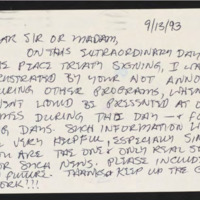 9/13/93
EAR SIR OR MADAM,
ON THIS EXTRAORDINARY DAY
HE PEACE TREATY SIGNING, I WA
RUSTRATED BY YOUR NOT ANNO
URING OTHER PROGRAMS, WHEN
WOULD BE PRESENTED AT O
MES DURING THIS DAY — & FO
G DAYS. SUCH INFORMATION W
VERY HELPFUL, ESPECIALLY SIN
ARE THE ONE & ONLY REAL S
OR SUCH NEWS. PLEASE INCLUDE
FUTURE. THANKS & KEEP UP THE G
ORK!!!